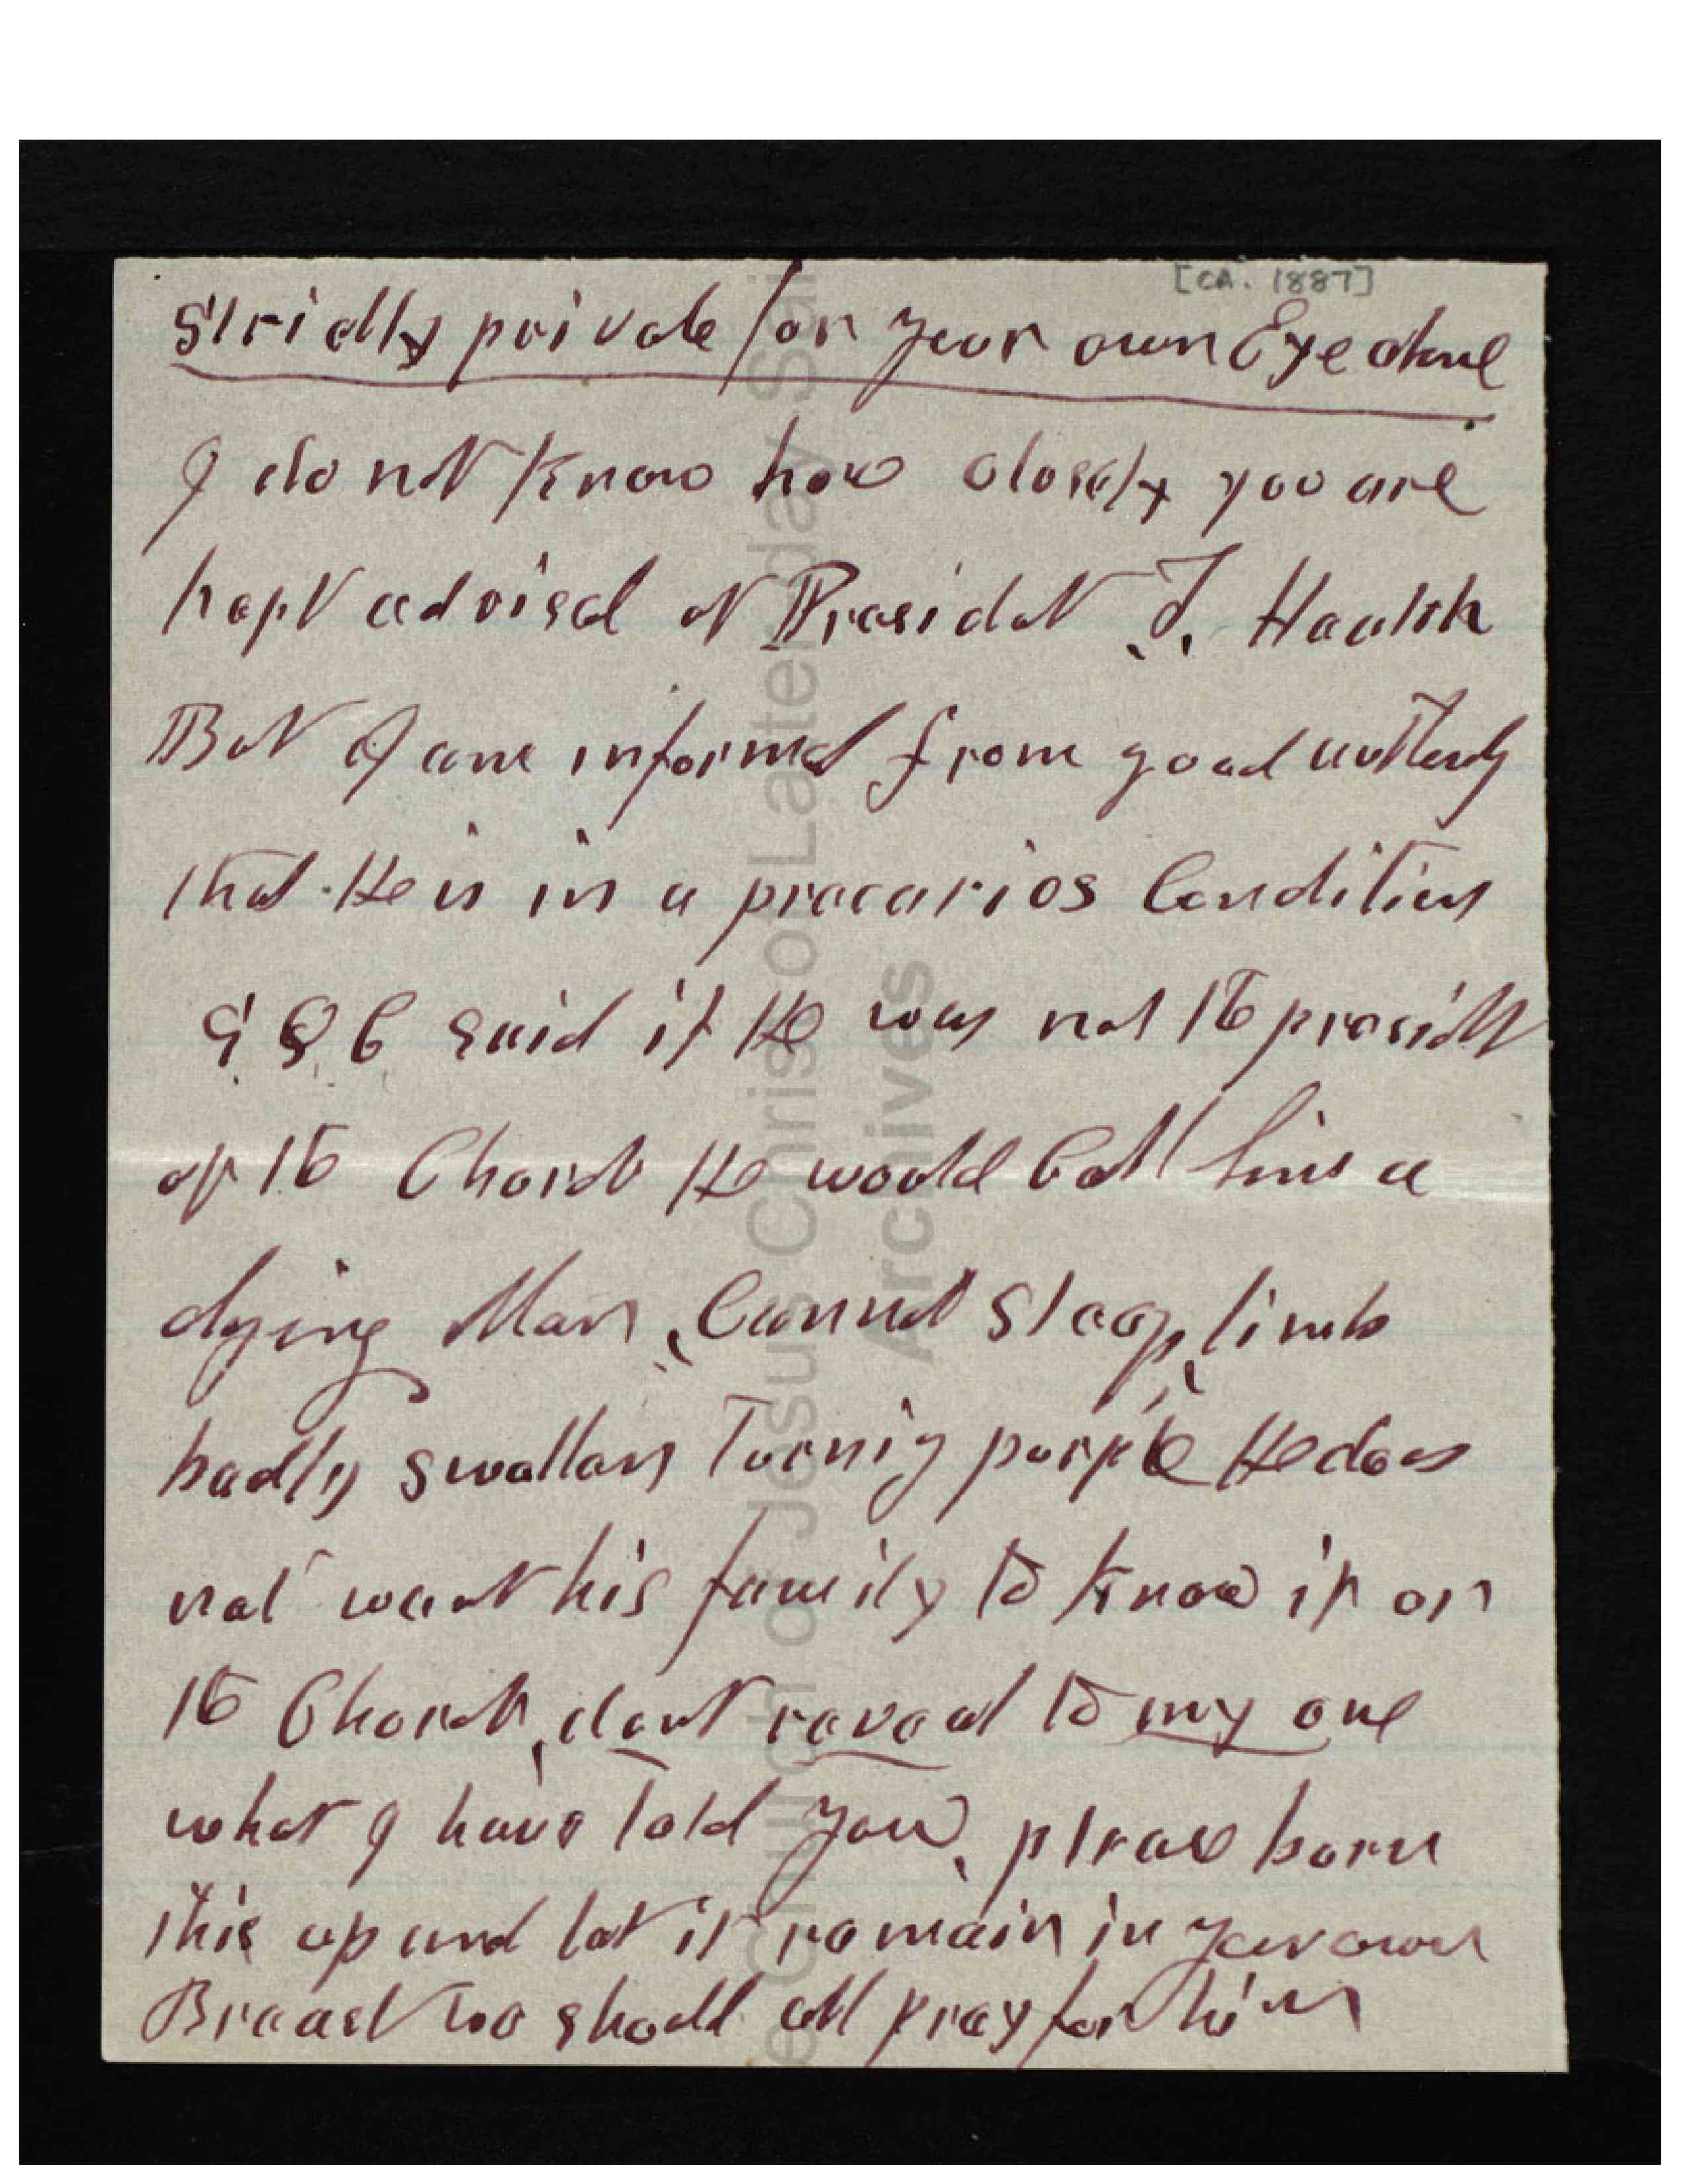 [CA. 1887]
Strictly private for your own Eye alone
I do not Know how closely you are
kept advised of Presidet T. Health
But I am informed from good
that He is in a precarios Condition
G Q C said if He was not the presidt
of the Church He would Call him a
dying Man, Cannot Sleep, limbs
badly swollen Turnig purple He does
not want his family to know it or
the Church, dont reveal to any one
what I have told you, please burn
this up and let it remain in your own
Breast we should all pray for him
The Church of Jesus Christ of Latter-day Sai
Archives